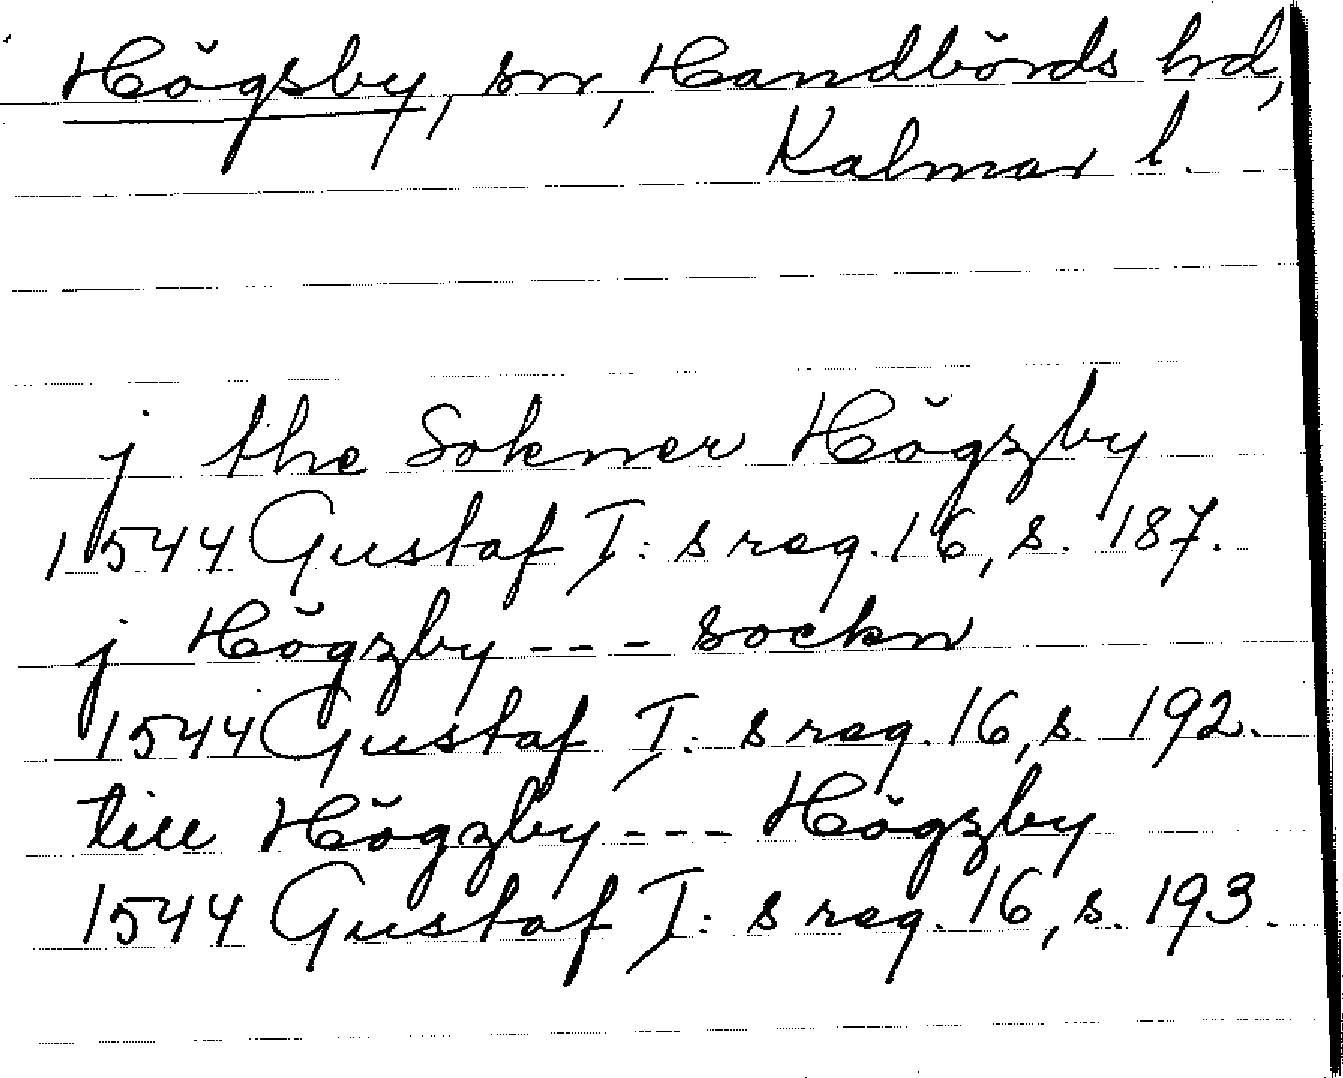 Högsby, sn, Handbörds hd,
Kalmar l.
j the Sokner Högzby
1544 Gustaf I:s reg. 16, s. 187.
j Högzby --- sockn
1544 Gustaf I:s reg. 16, s. 192.
till Högzby --- Högzby
1544 Gustaf I:s reg. 16, s. 193.